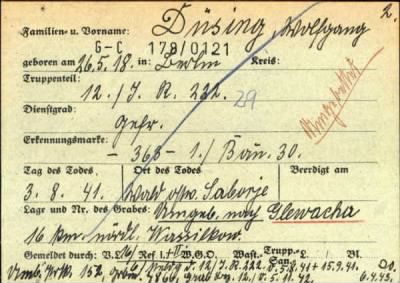 2.
Familien- u. Vorname: Düsing, Wolfgang
G-C 178/0121
geboren am 26.5.18. in: Berlin Kreis:
Truppenteil:
12./J.R. 222.
29
Umgebettet
Dienstgrad:
Gefr.
Erkennungsmarke:
- 363 - 1./ Bau. 30.
Tag des Todes Ort des Todes Beerdigt am
3.8.41. Wald ostw. Saborje
Lage und Nr. des Grabes: Umgeb. nach Glewacha
16 km nördl. Wassilkow.
Gemeldet durch: V.L. Ref I. W.G.O. Wast.- Trupp- San.- L. Bl.
12/J.R. 222 5.8.41 + 15.9.41. Do.
6.4.43.